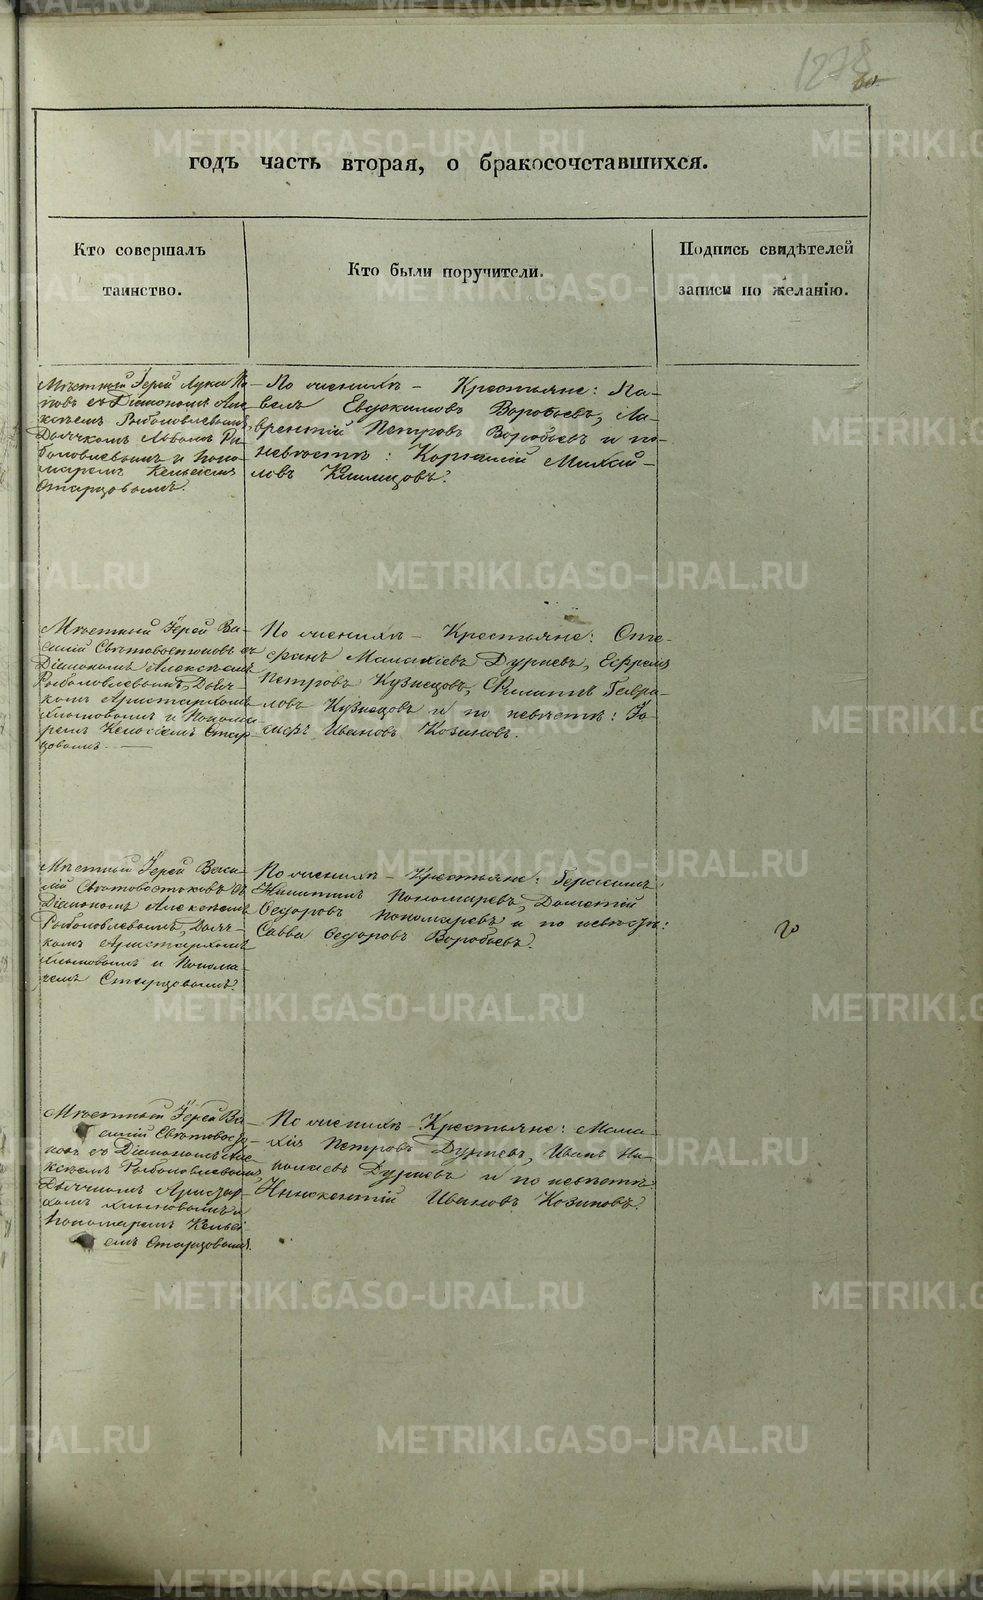 1278
60
годъ часть вторая, о бракосочставшихся.
Кто совершалъ
таинство.
Кто были поручители.
Подпись свидѣтелей
записи по желанію.
Мѣстный Іерей Лука По-
повъ съ Діакономъ Але-
ксѣемъ Рыболовлевымъ,
Дьячкомъ Львомъ Ры-
боловлевымъ и поно-
маремъ
Старцовымъ.
По женихѣ – Крестьяне: Па-
велъ Евдокимовъ Воробьевъ, Ла-
врентій Петровъ Воробьевъ и по
невѣстѣ: Михай-
ловъ
Мѣстный Іерей Ва-
силій Свѣтовостоковъ съ
Діакономъ Алексѣемъ
Рыболовлевымъ, Дьяч-
комъ Аристархомъ
и Понома-
ремъ Стар-
цовымъ.
По женихѣ – Крестьяне: Сте-
фанъ Малахіевъ Дурневъ, Ефремъ
Петровъ Кузнецовъ, Филиппъ Гаври-
ловъ Кузнецовъ и по невѣстѣ: Іо-
сифъ Ивановъ Козиковъ.
Мѣстный Іерей Васи-
лій Свѣтовостоковъ съ
Діакономъ Алексѣемъ
Рыболовлевымъ, Дьяч-
комъ Аристархомъ
и Понома-
ремъ Старцовымъ.
По женихѣ – Крестьяне: Герасимъ
Никитинъ Пономаревъ, Дометій
Ѳедоровъ Пономаревъ и по невѣстѣ:
Савва Ѳедоровъ Воробьевъ.
Мѣстный Іерей Ва-
силій Свѣтовосто-
ковъ съ Діакономъ Але-
ксѣемъ Рыболовлевымъ,
Дьячкомъ Аристар-
хомъ и
пономаремъ
Старцовымъ.
По женихѣ – Крестьяне: Мала-
хія Петровъ Дурневъ, Иванъ Ни-
колаевъ Дурневъ и по невѣстѣ
Иннокентій Ивановъ Козиковъ.
METRIKI.GASO-URAL.RU